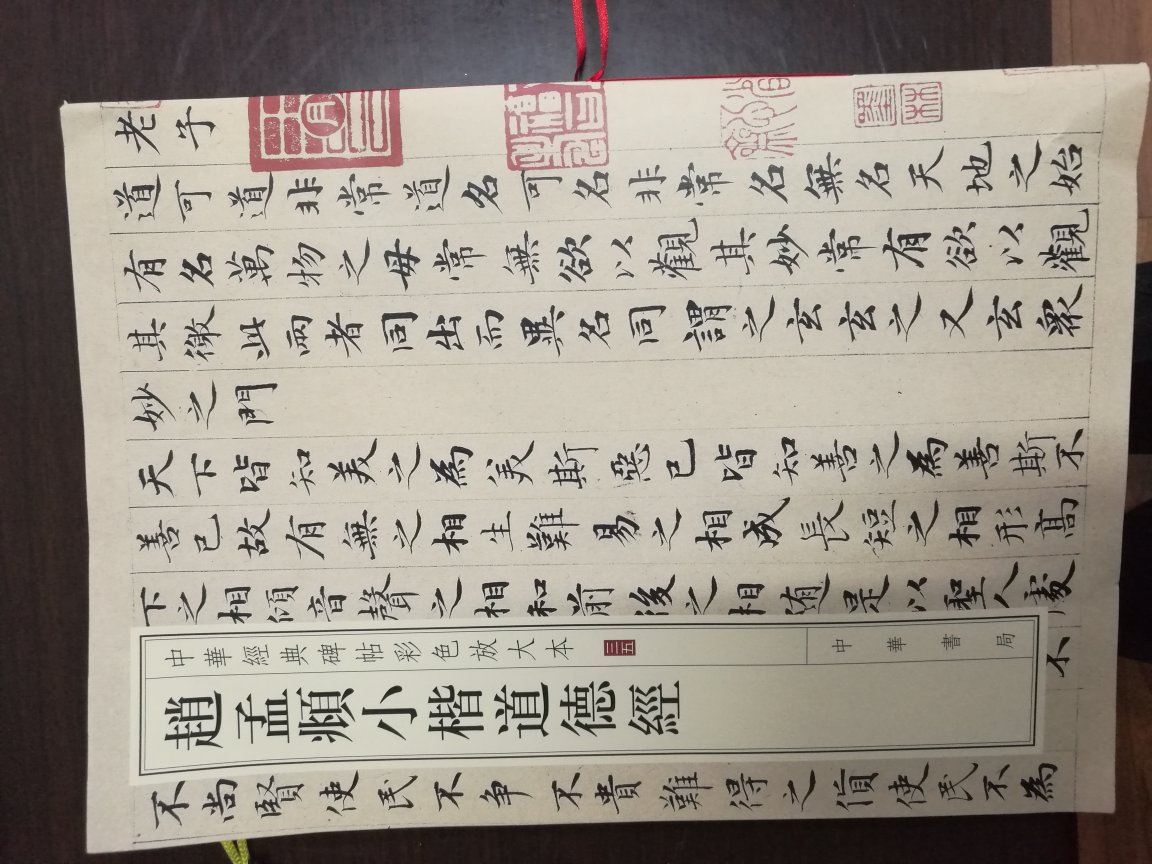 老子
道可道非常道名可名非常名無名天地之始
有名萬物之母常無欲以觀其妙常有欲以觀
其徼此兩者同出而異名同謂之玄玄之又玄衆
妙之門
天下皆知美之為美斯惡已皆知善之為善斯不
善已故有無之相生難易之相成長短之相形高
下之相傾音聲之相和前後之相随是以聖人處
不
中華經典碑帖彩色放大本 三五 中華書局
趙孟頫小楷道德經
不尚賢使民不争不貴難得之貨使民不為